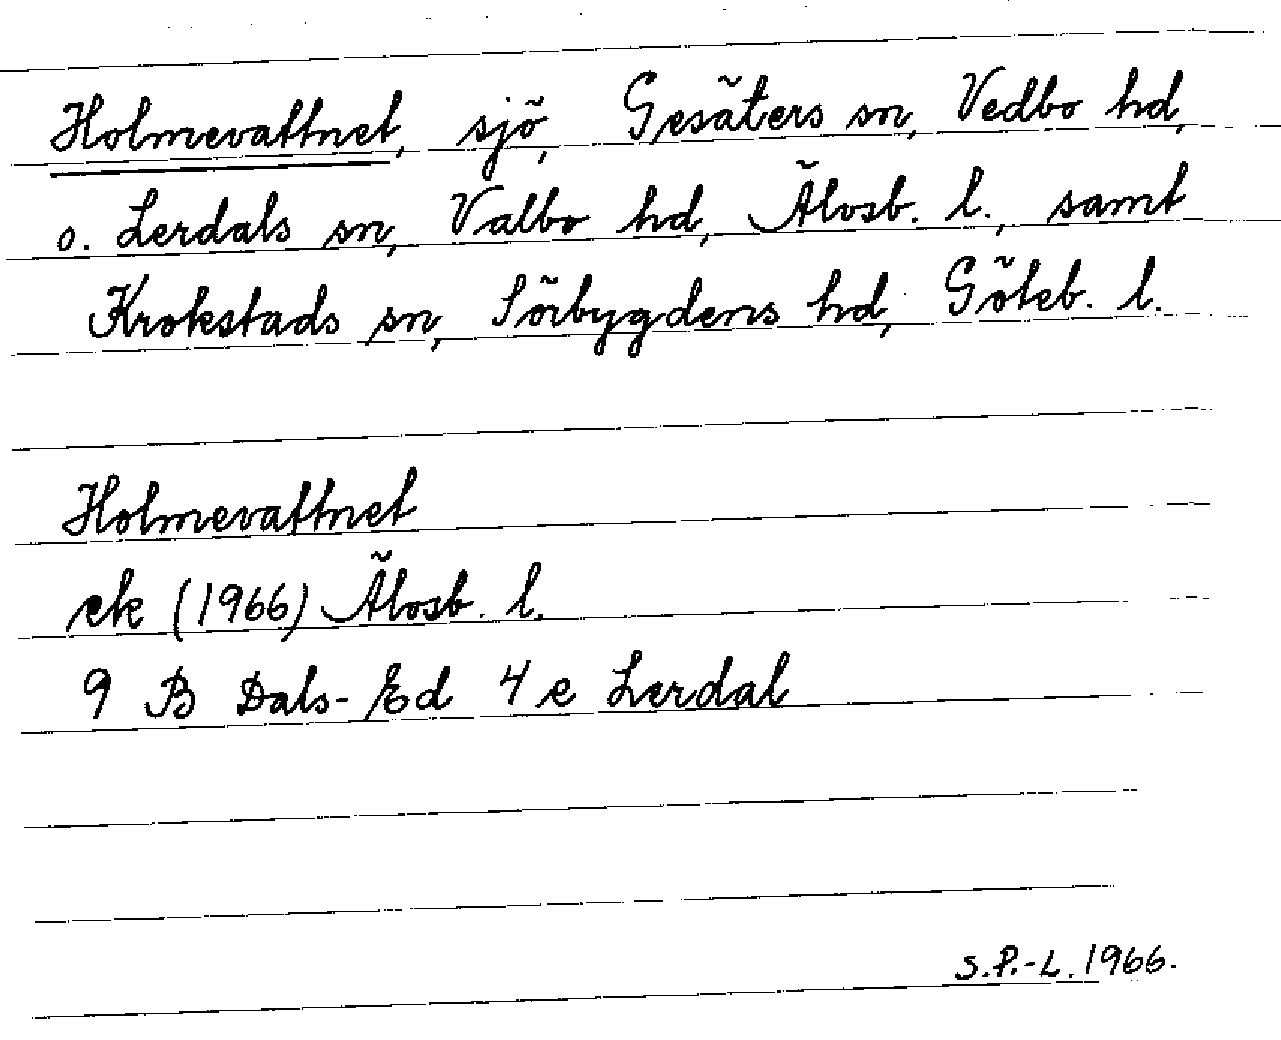 Holmevattnet, sjö, Gesäters sn, Vedbo hd,
o. Lerdals sn, Valbo hd, Älvsb. l., samt
Krokstads sn, Sörbygdens hd, Göteb. l.
Holmevattnet
ek (1966) Älvsb. l.
9 B Dals-Ed 4 e Lerdal
S.P.-L. 1966.